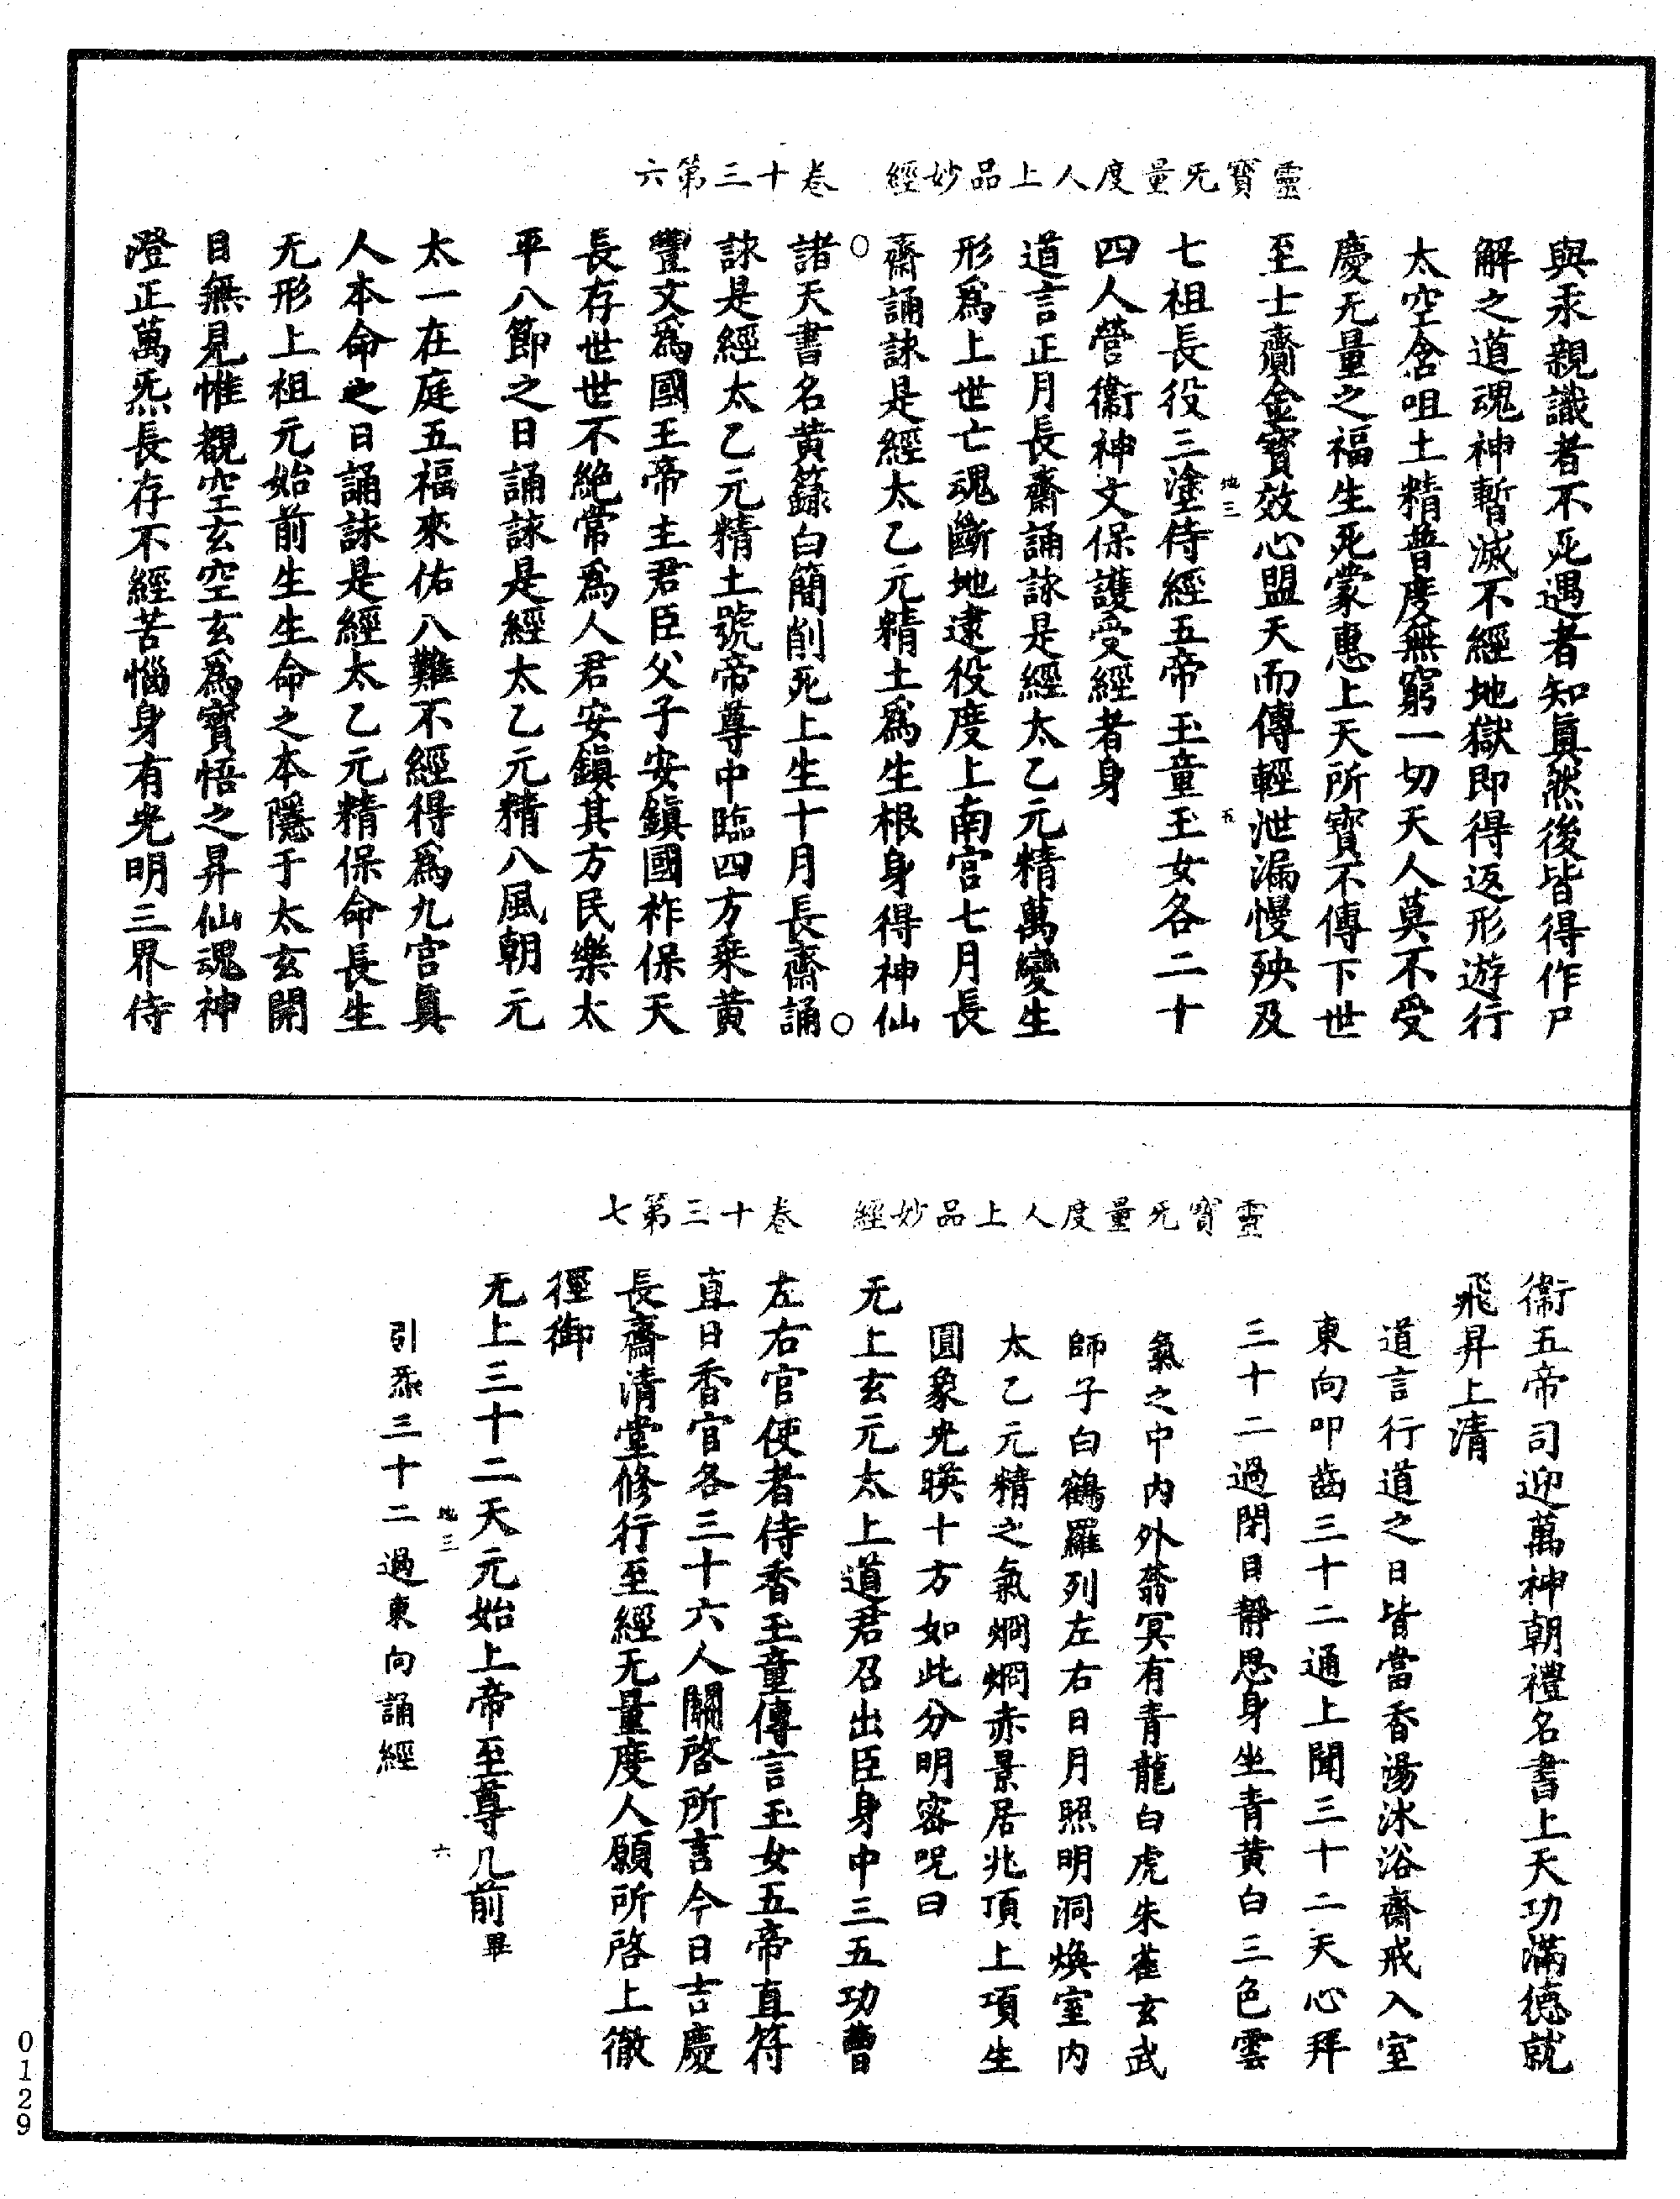 靈寳旡量度人上品妙經　卷十三第六
與汞親識者不死遇者知真然後皆得作尸
解之道魂神暫滅不經地獄即得返形遊行
太空含咀土精普度無窮一切天人莫不受
慶旡量之福生死蒙惠上天所寳不傳下世
至士齎金寳效心盟天而傳輕泄漏慢殃及
地三　五
七祖長役三塗侍經五帝玉童玉女各二十
四人營衞神文保護受經者身
道言正月長齋誦詠是經太乙元精萬變生
形爲上世亡魂斷地逮役度上南宮七月長
齋誦詠是經太乙元精土爲生根身得神仙
○　○
諸天書名黄籙白簡削死上生十月長齋誦
詠是經太乙元精土號帝尊中臨四方乗黄
豐文爲國王帝主君臣父子安鎮國祚保天
長存世世不絶常爲人君安鎮其方民樂太
平八節之日誦詠是經太乙元精八風朝元
太一在庭五福來佑八難不經得爲九宮真
人本命之日誦詠是經太乙元精保命長生
旡形上祖元始前生生命之本隱于太玄開
目無見惟觀空玄空玄爲寳悟之昇仙魂神
澄正萬炁長存不經苦惱身有光明三界侍
靈寳旡量度人上品妙經　卷十三第七
衞五帝司迎萬神朝禮名書上天功滿德就
飛昇上清
道言行道之日皆當香湯沐浴齋戒入室
東向叩齒三十二通上聞三十二天心拜
三十二過閉目靜思身坐青黄白三色雲
氣之中内外蓊冥有青龍白虎朱雀玄武
師子白鶴羅列左右日月照明洞煥室内
太乙元精之氣烱烱赤景居兆頂上項生
圓象光暎十方如此分明密呪曰
旡上玄元太上道君召出臣身中三五功曹
左右官使者侍香玉童傳言玉女五帝直符
直日香官各三十六人關啓所言今日吉慶
長齋清堂修行至經旡量度人願所啓上徹
徑御
旡上三十二天元始上帝至尊几前畢
地三　六
引炁三十二過東向誦經
0129